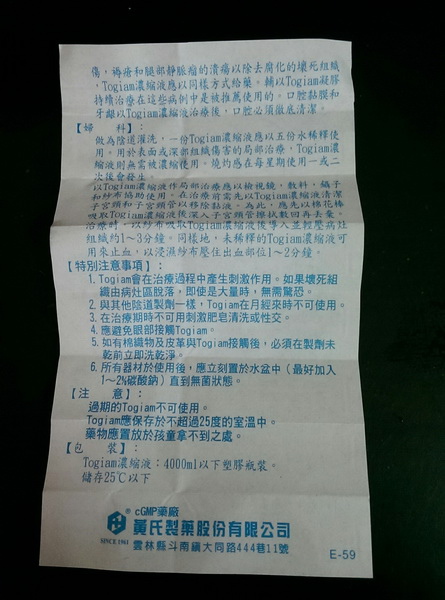 傷，褥瘡和腿部靜脈瘤的潰瘍以除去腐化的壞死組織
，Togiam濃縮液應以同樣方式給藥。輔以Togiam凝膠
持續治療在這些病例中是被推薦使用的。口腔黏膜和
牙齦以Togiam濃縮液治療後，口腔必須徹底清潔。
【婦　　科】：
做為陰道灌洗，一份Togiam濃縮液應以五份水稀釋使
用。用於表面或深部組織傷害的局部治療，Togiam濃
縮液則無需被濃縮使用。燒灼應在每星期使用一或二
次後會發生。
以Togiam濃縮液作局部治療應以檢視鏡，敷料，鑷子
和紗布協助使用。在治療前需先以Togiam濃縮液清潔
子宮頸和子宮頸管以移除黏液。為此，應先以棉花棒
吸取Togiam濃縮液後深入子宮頸管擦拭數回再去棄。
治療時，以紗布吸取Togiam濃縮液後導入並輕壓病灶
組織約1～3分鐘。同樣地，未稀釋的Togiam濃縮液可
用來止血，以浸濕紗布壓住出血部位1～2分鐘。
【特別注意事項】：
1. Togiam會在治療過程中產生刺激作用。如果壞死組
織由病灶區脫落，即使是大量時，無需驚恐。
2. 與其他陰道製劑一樣，Togiam在月經來時不可使用。
3. 在治療期時不可用刺激肥皂清洗或性交。
4. 應避免眼部接觸Togiam。
5. 如有棉織物及皮革與Togiam接觸後，必須在製劑未
乾前立即洗乾淨。
6. 所有器材於使用後，應立刻置於水盆中（最好加入
1～2%碳酸鈉）直到無菌狀態。
【注　　意】：
過期的Togiam不可使用。
Togiam應保存於不超過25度的室溫中。
藥物應置放於孩童拿不到之處。
【包　　裝】：
Togiam濃縮液：4000ml以下塑膠瓶裝。
儲存25℃以下
® cGMP藥廠
萬氏製藥股份有限公司
SINCE 1961
雲林縣斗南鎮大同路444巷11號
E-59